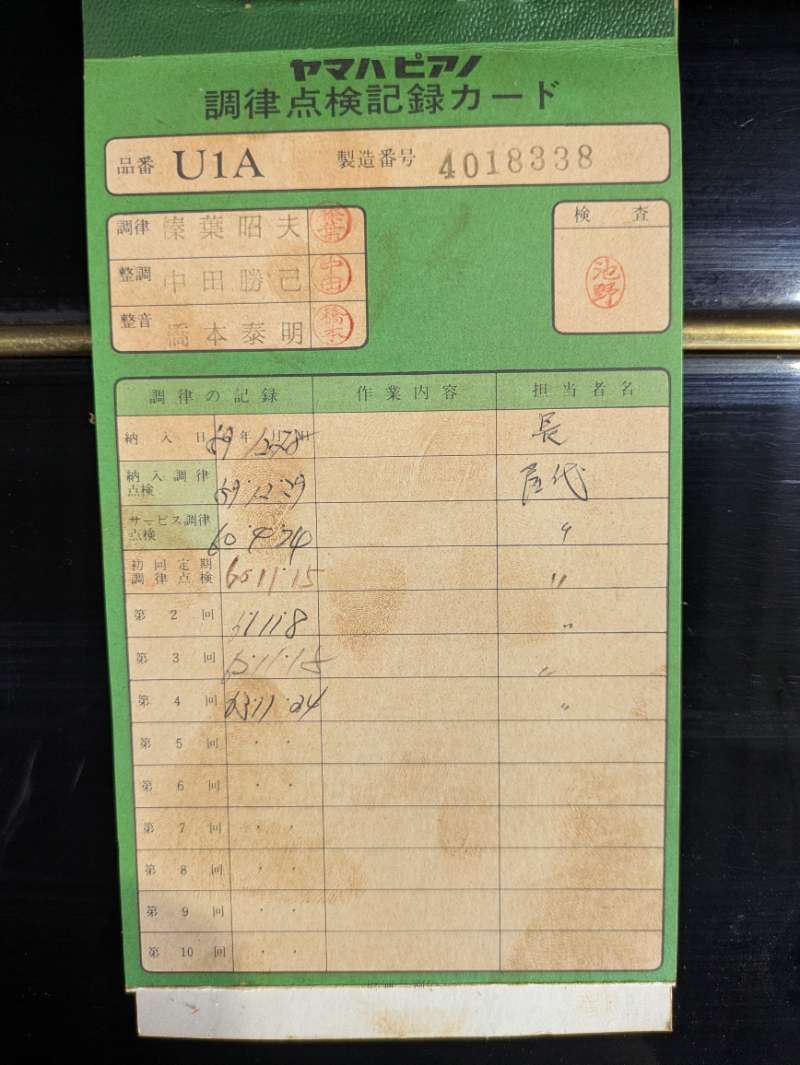 ヤマハピアノ
調律点検記録カード
品番 U1A 製造番号 4018338
調律 榛葉昭夫 榛葉
整調 中田勝己 中田
整音 橋本泰明 橋本
検査
池野
調律の記録 作業内容 担当者名
納入日 59年12月28日 長
納入調律点検 59・12・29 屋代
サービス調律点検 60・4・24 〃
初回定期調律点検 60・11・15 〃
第2回 61・11・8 〃
第3回 11・15 〃
第4回 63・11・24 〃
第5回 ・ ・
第6回 ・ ・
第7回 ・ ・
第8回 ・ ・
第9回 ・ ・
第10回 ・ ・